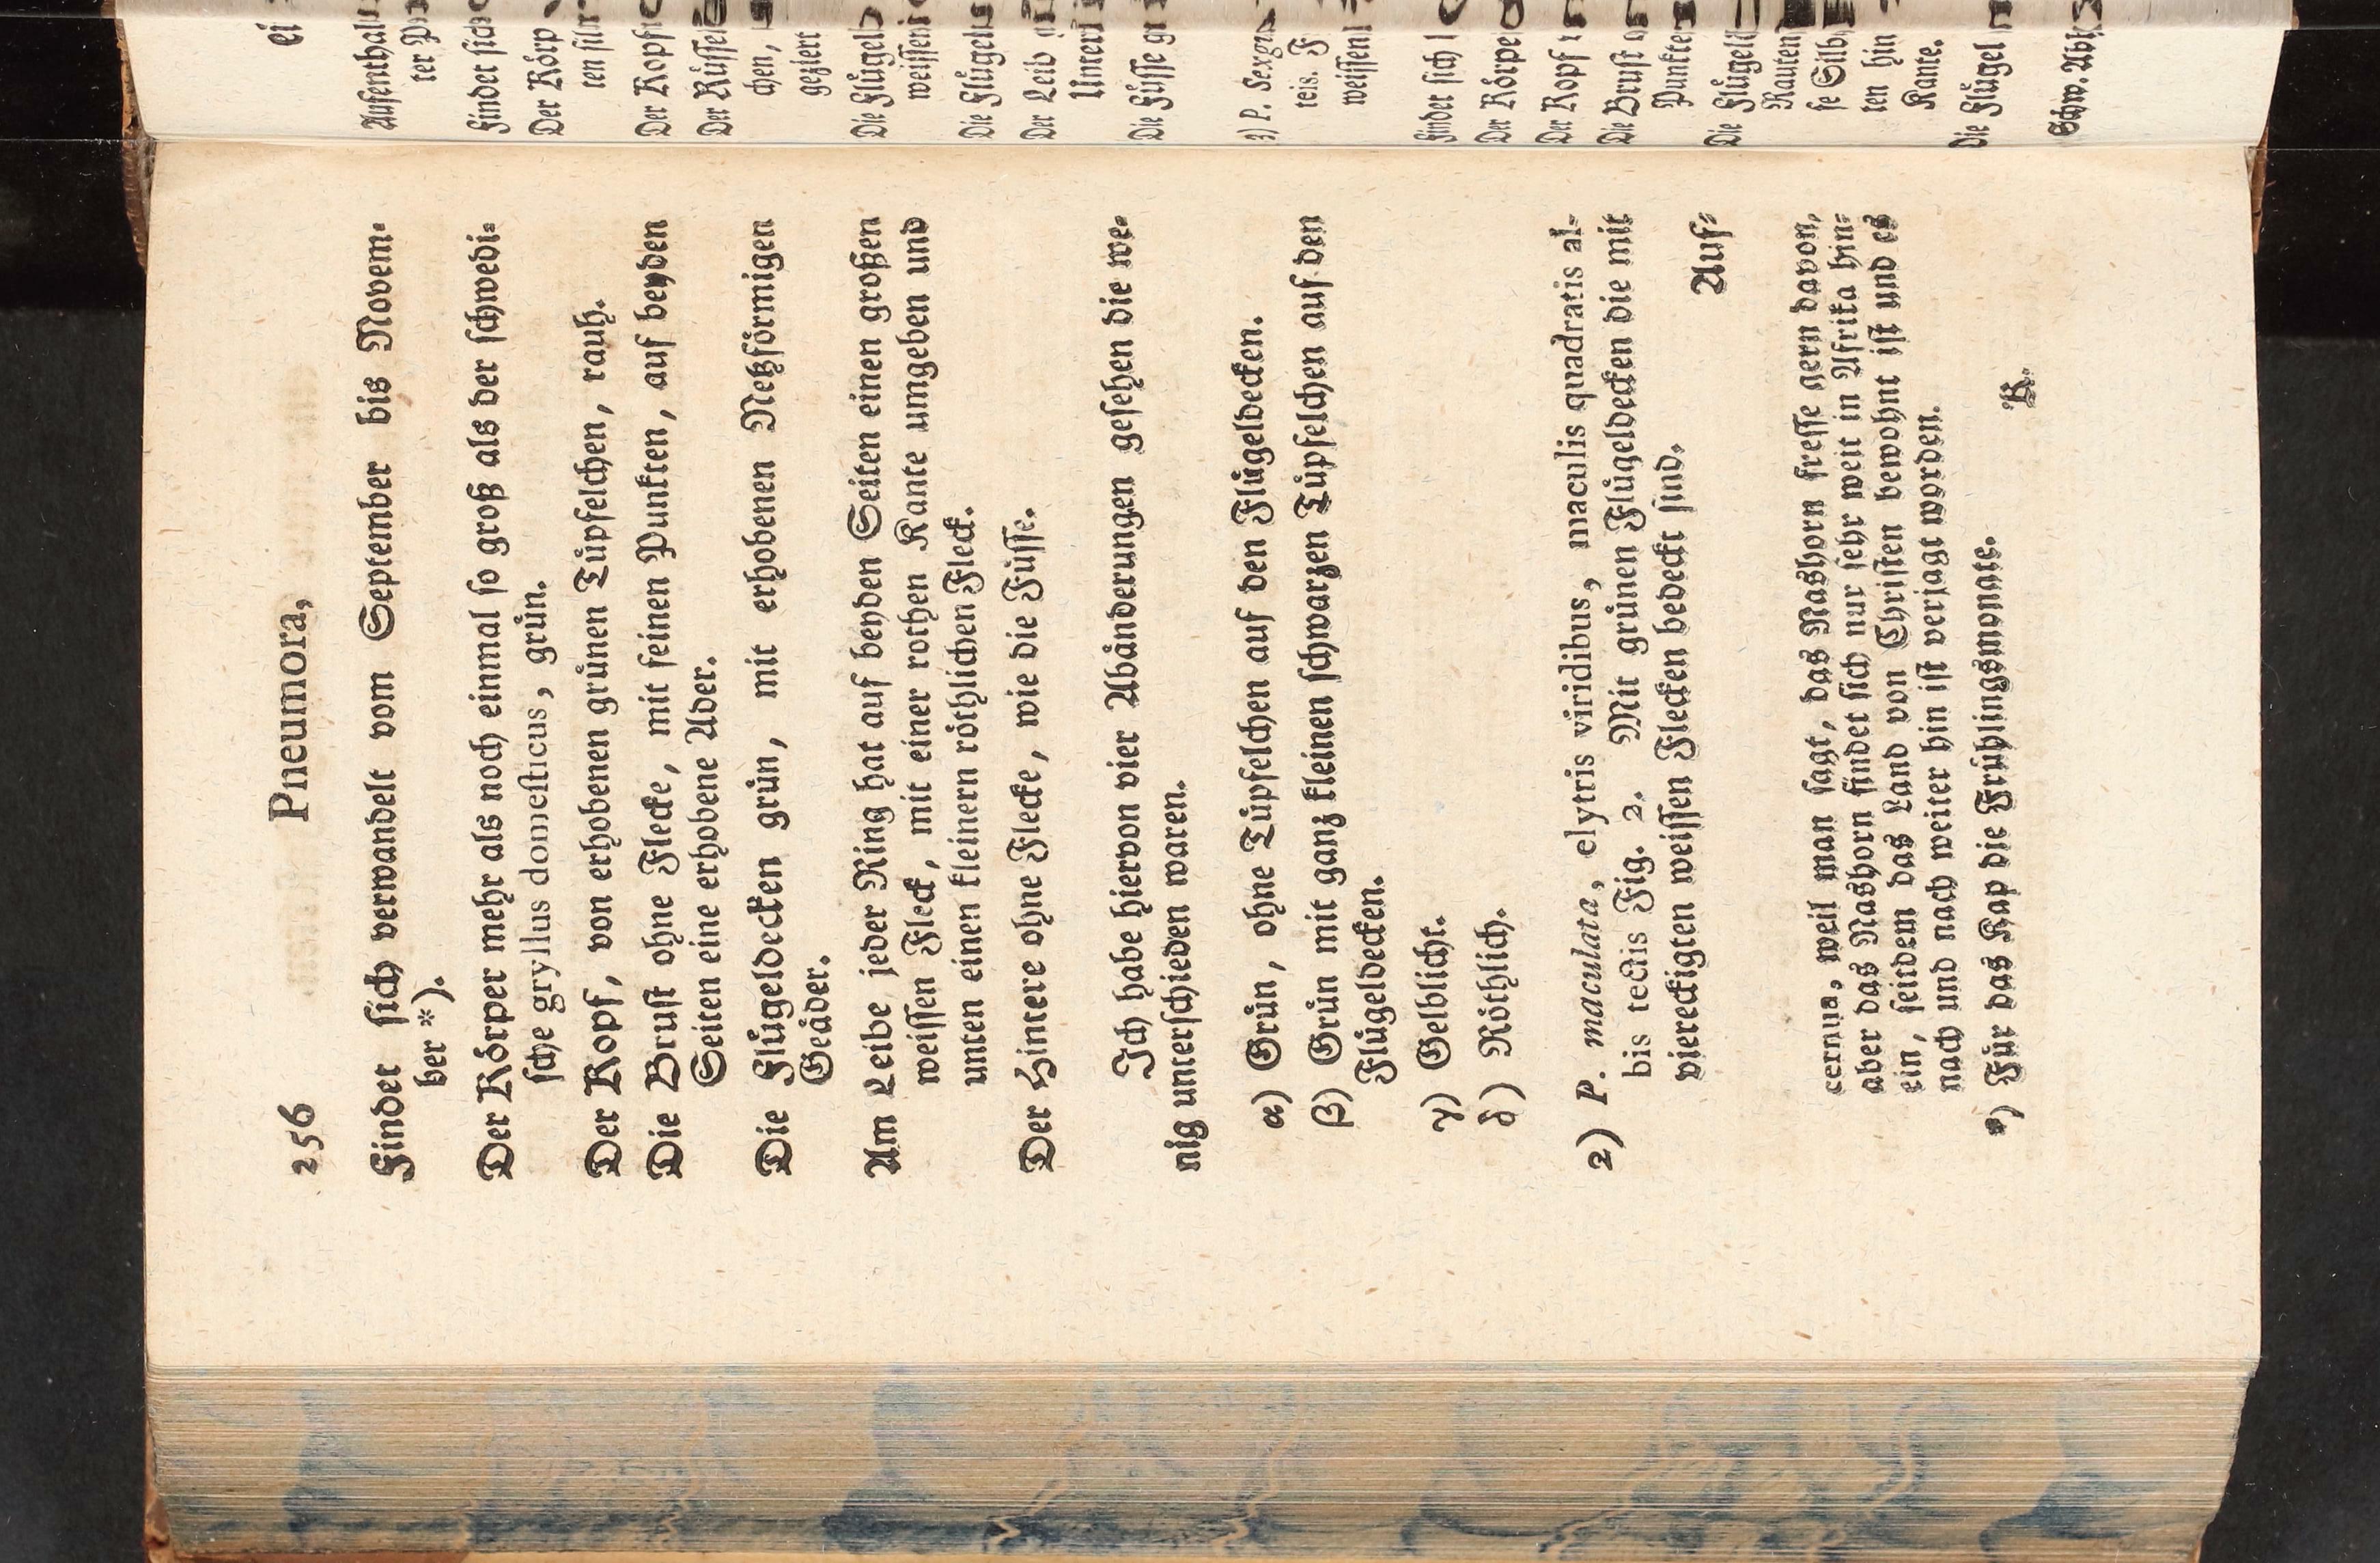 256 Pneumora,
Findet sich verwandelt vom September bis Novem-
ber *).
Der Körper mehr als noch einmal so groß als der schwedi-
sche gryllus domesticus, grün.
Der Kopf, von erhobenen grünen Tüpfelchen, rauh.
Die Brust ohne Flecke, mit feinen Punkten, auf beyden
Seiten eine erhobene Ader.
Die Flügeldecken grün, mit erhobenen Netzförmigen
Geäder.
Am Leibe jeder Ring hat auf beyden Seiten einen großen
weissen Fleck, mit einer rothen Kante umgeben und
unten einen kleinern röthlichen Fleck.
Der Hintere ohne Flecke, wie die Füsse.
Ich habe hiervon vier Abänderungen gesehen die we-
nig unterschieden waren.
α) Grün, ohne Tüpfelchen auf den Flügeldecken.
β) Grün mit ganz kleinen schwarzen Tüpfelchen auf den
Flügeldecken.
γ) Gelblicht.
δ) Röthlich.
2) P. maculata, elytris viridibus, maculis quadratis al-
bis tectis Fig. 2. Mit grünen Flügeldecken die mit
viereckigten weissen Flecken bedeckt sind.
Auf-
cernua, weil man sagt, das Nashorn fresse gern davon,
aber das Nashorn findet sich nur sehr weit in Afrika hin-
ein, seitdem das Land von Christen bewohnt ist und es
nach und nach weiter hin ist verjagt worden.
*) Für das Kap die Frühlingsmonate.
K.
ei
Aufenthal
ter P
Findet sich
Der Körp
ten silb
Der Kopf
Der Rüssel
chen,
geziert
Die Flügel
weissen
Die Flügel
Der Leib
Unter
Die Füsse gr
3) P. Sexgu
teis. F
weissen
Findet sich
Der Körpe
Der Kopf
Die Brust
Punkte
Die Flügeld
Rauten
fe Silb
ten hin
Kante.
Die Flügel
Schw. Abh